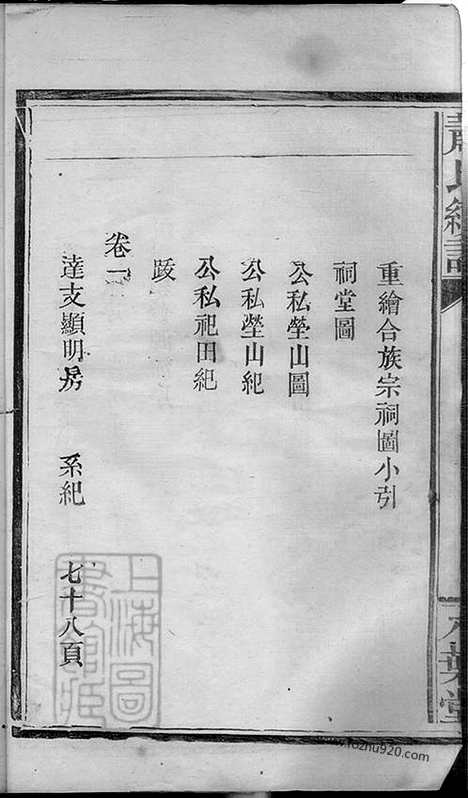 重繪合族宗祠圖小引
祠堂圖
公私塋山圖
公私塋山紀
公私祀田紀
跋
卷一
達支顯明房 系紀 七十八頁
上海圖書館藏
八葉堂
www.fozhu920.com